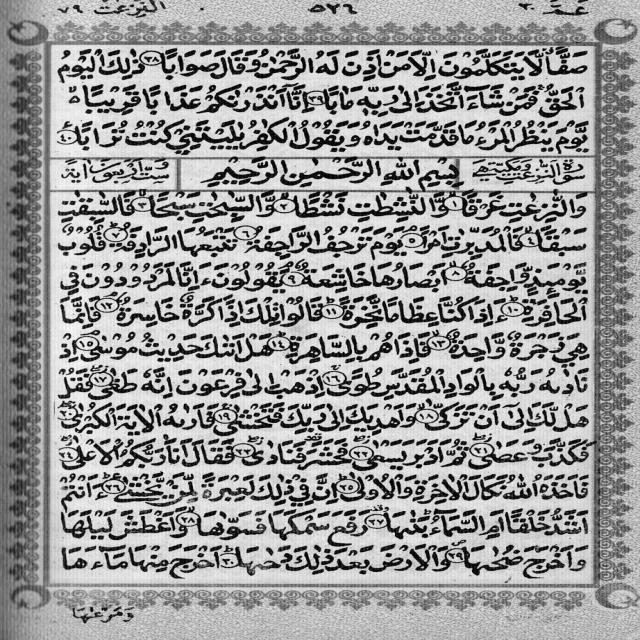 عمّ ٣٠ ٥٢٦ النّٰزعٰت ٧٩
صَفًّا لَّا يَتَكَلَّمُوْنَ اِلَّا مَنْ اَذِنَ لَهُ الرَّحْمٰنُ وَقَالَ صَوَابًا ۝٣٨ ذٰلِكَ الْيَوْمُ
الْحَقُّ فَمَنْ شَآءَ اتَّخَذَ اِلٰى رَبِّهٖ مَاٰبًا ۝٣٩ اِنَّآ اَنْذَرْنٰكُمْ عَذَابًا قَرِيْبًا ۚ
يَّوْمَ يَنْظُرُ الْمَرْءُ مَا قَدَّمَتْ يَدٰهُ وَيَقُوْلُ الْكٰفِرُ يٰلَيْتَنِيْ كُنْتُ تُرٰبًا ۝٤٠
سورة النّٰزعٰت مكية بِسْمِ اللّٰهِ الرَّحْمٰنِ الرَّحِيْمِ ست واربعون اية
وَالنّٰزِعٰتِ غَرْقًا ۝١ وَّالنّٰشِطٰتِ نَشْطًا ۝٢ وَّالسّٰبِحٰتِ سَبْحًا ۝٣ فَالسّٰبِقٰتِ
سَبْقًا ۝٤ فَالْمُدَبِّرٰتِ اَمْرًا ۝٥ يَوْمَ تَرْجُفُ الرَّاجِفَةُ ۝٦ تَتْبَعُهَا الرَّادِفَةُ ۝٧ قُلُوْبٌ
يَّوْمَئِذٍ وَّاجِفَةٌ ۝٨ اَبْصَارُهَا خَاشِعَةٌ ۝٩ يَقُوْلُوْنَ ءَاِنَّا لَمَرْدُوْدُوْنَ فِى
الْحَافِرَةِ ۝١٠ ءَاِذَا كُنَّا عِظَامًا نَّخِرَةً ۝١١ قَالُوْا تِلْكَ اِذًا كَرَّةٌ خَاسِرَةٌ ۝١٢ فَاِنَّمَا
هِيَ زَجْرَةٌ وَّاحِدَةٌ ۝١٣ فَاِذَا هُمْ بِالسَّاهِرَةِ ۝١٤ هَلْ اَتٰىكَ حَدِيْثُ مُوْسٰى ۝١٥ اِذْ
نَادٰىهُ رَبُّهٗ بِالْوَادِ الْمُقَدَّسِ طُوًى ۝١٦ اِذْهَبْ اِلٰى فِرْعَوْنَ اِنَّهٗ طَغٰى ۝١٧ فَقُلْ
هَلْ لَّكَ اِلٰٓى اَنْ تَزَكّٰى ۝١٨ وَاَهْدِيَكَ اِلٰى رَبِّكَ فَتَخْشٰى ۝١٩ فَاَرٰىهُ الْاٰيَةَ الْكُبْرٰى ۝٢٠
فَكَذَّبَ وَعَصٰى ۝٢١ ثُمَّ اَدْبَرَ يَسْعٰى ۝٢٢ فَحَشَرَ فَنَادٰى ۝٢٣ فَقَالَ اَنَا رَبُّكُمُ الْاَعْلٰى ۝٢٤
فَاَخَذَهُ اللّٰهُ نَكَالَ الْاٰخِرَةِ وَالْاُوْلٰى ۝٢٥ اِنَّ فِيْ ذٰلِكَ لَعِبْرَةً لِّمَنْ يَّخْشٰى ۝٢٦ ءَاَنْتُمْ
اَشَدُّ خَلْقًا اَمِ السَّمَآءُ بَنٰىهَا ۝٢٧ رَفَعَ سَمْكَهَا فَسَوّٰىهَا ۝٢٨ وَاَغْطَشَ لَيْلَهَا
وَاَخْرَجَ ضُحٰىهَا ۝٢٩ وَالْاَرْضَ بَعْدَ ذٰلِكَ دَحٰىهَا ۝٣٠ اَخْرَجَ مِنْهَا مَآءَهَا
وَمَرْعٰىهَا